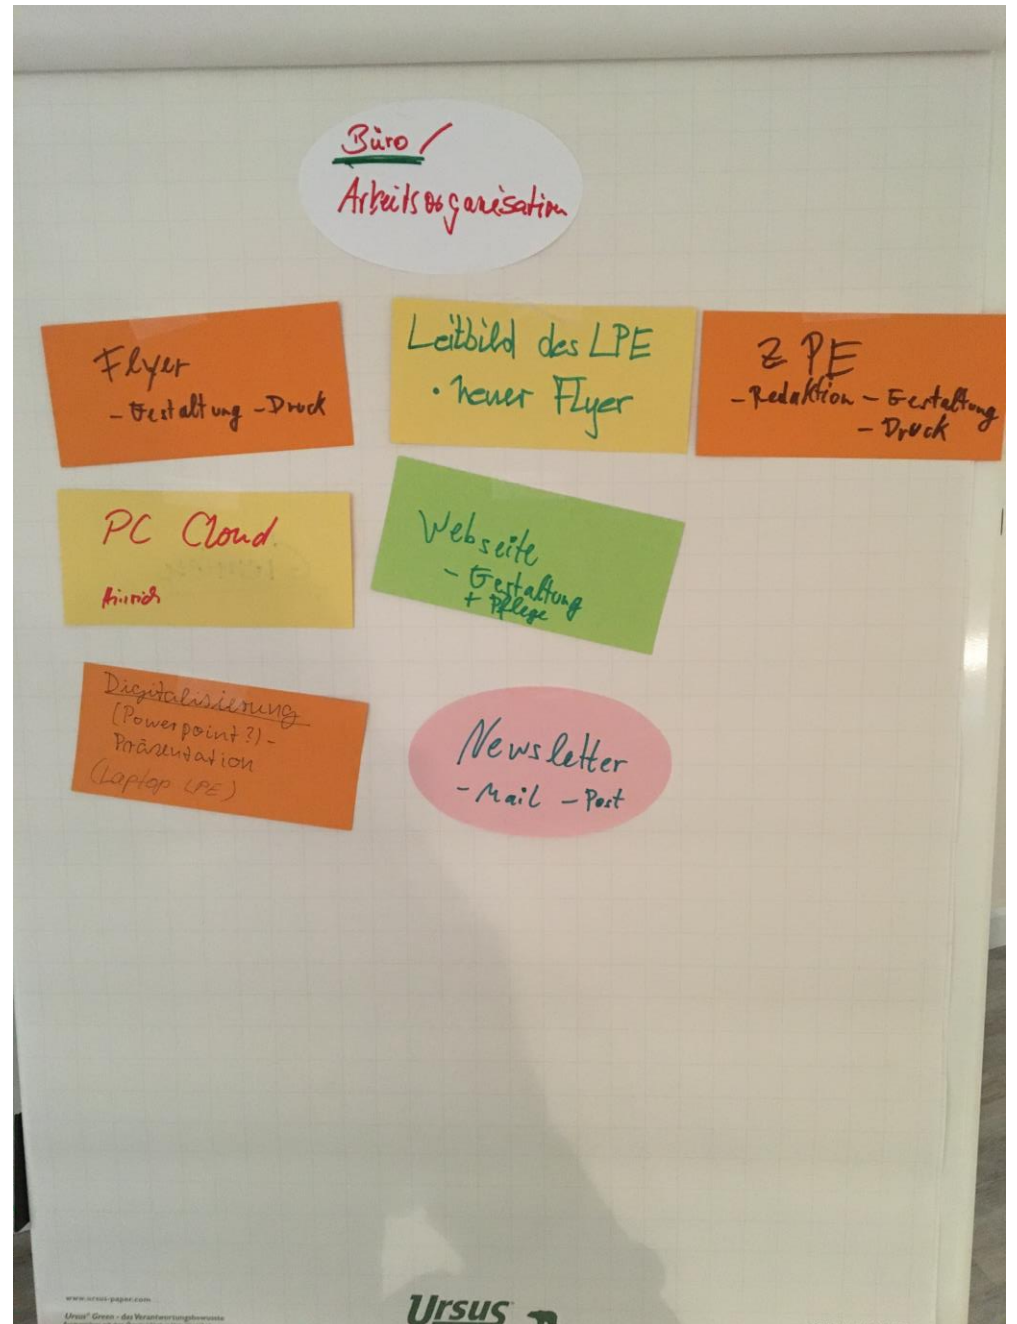 Büro /
Arbeitsorganisation
Flyer
- Gestaltung - Druck
Leitbild des LPE
• neuer Flyer
Z PE
- Redaktion - Gestaltung
- Druck
PC Cloud
Hinrich
Webseite
- Gestaltung
+ Pflege
Digitalisierung
(Powerpoint?) -
Präsentation
(Laptop LPE)
Newsletter
- Mail - Post
www.ursus-paper.com
Ursus® Green - das Verantwortungsbewusste
Ursus